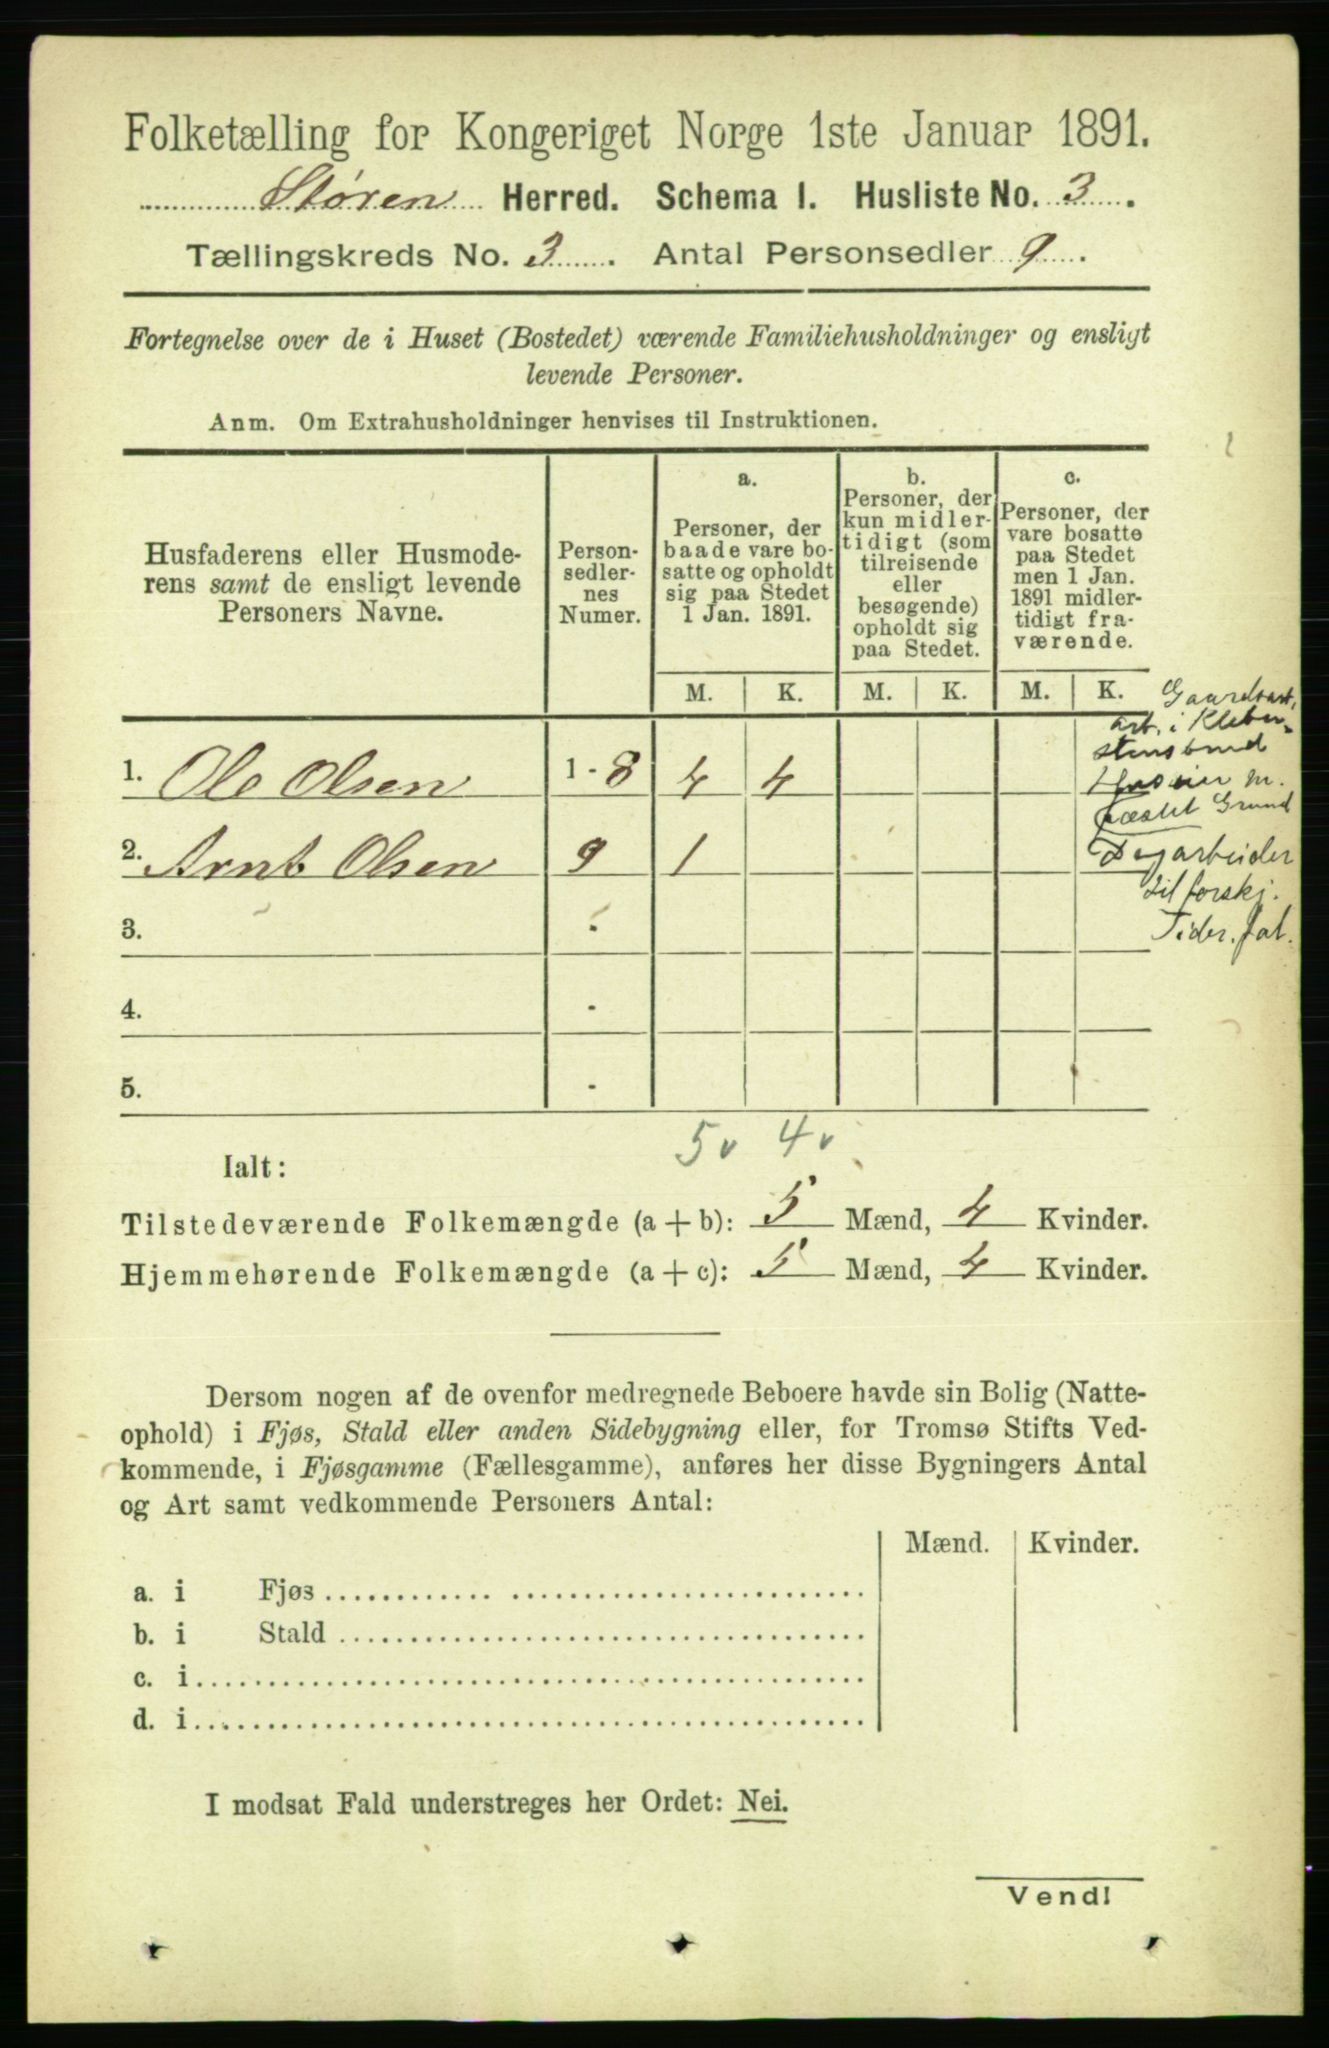 Folketælling for Kongeriget Norge 1ste Januar 1891.
Støren Herred. Schema I. Husliste No. 3.
Tællingskreds No. 3. Antal Personsedler 9.
Fortegnelse over de i Huset (Bostedet) værende Familiehusholdninger og ensligt
levende Personer.
Anm. Om Extrahusholdninger henvises til Instruktionen.
Husfaderens eller Husmode-
rens samt de ensligt levende
Personers Navne.
Person-
sedler-
nes
Numer.
a.
Personer, der
baade vare bo-
satte og opholdt
sig paa Stedet
1 Jan. 1891.
b.
Personer, der
kun midler-
tidigt (som
tilreisende
eller
besøgende)
opholdt sig
paa Stedet.
c.
Personer, der
vare bosatte
paa Stedet
men 1 Jan.
1891 midler-
tidigt fra-
værende.
M. K. M. K. M. K.
Gaardsarb,
arb. i Kleber-
stensbrud
Husier m.
fæstet Grund
1. Ole Olsen 1 - 8 4 4
2. Arnt Olsen 9 1
Dagarbeider
til forskj.
Tider. fat.
3. -
4. -
5. -
5 v 4 v
Ialt:
Tilstedeværende Folkemængde (a + b): 5 Mænd, 4 Kvinder.
Hjemmehørende Folkemængde (a + c): 5 Mænd, 4 Kvinder.
Dersom nogen af de ovenfor medregnede Beboere havde sin Bolig (Natte-
ophold) i Fjøs, Stald eller anden Sidebygning eller, for Tromsø Stifts Ved-
kommende, i Fjøsgamme (Fællesgamme), anføres her disse Bygningers Antal
og Art samt vedkommende Personers Antal:
Mænd. Kvinder.
a. i Fjøs
b. i Stald
c. i
d. i
I modsat Fald understreges her Ordet: Nei.
Vend!